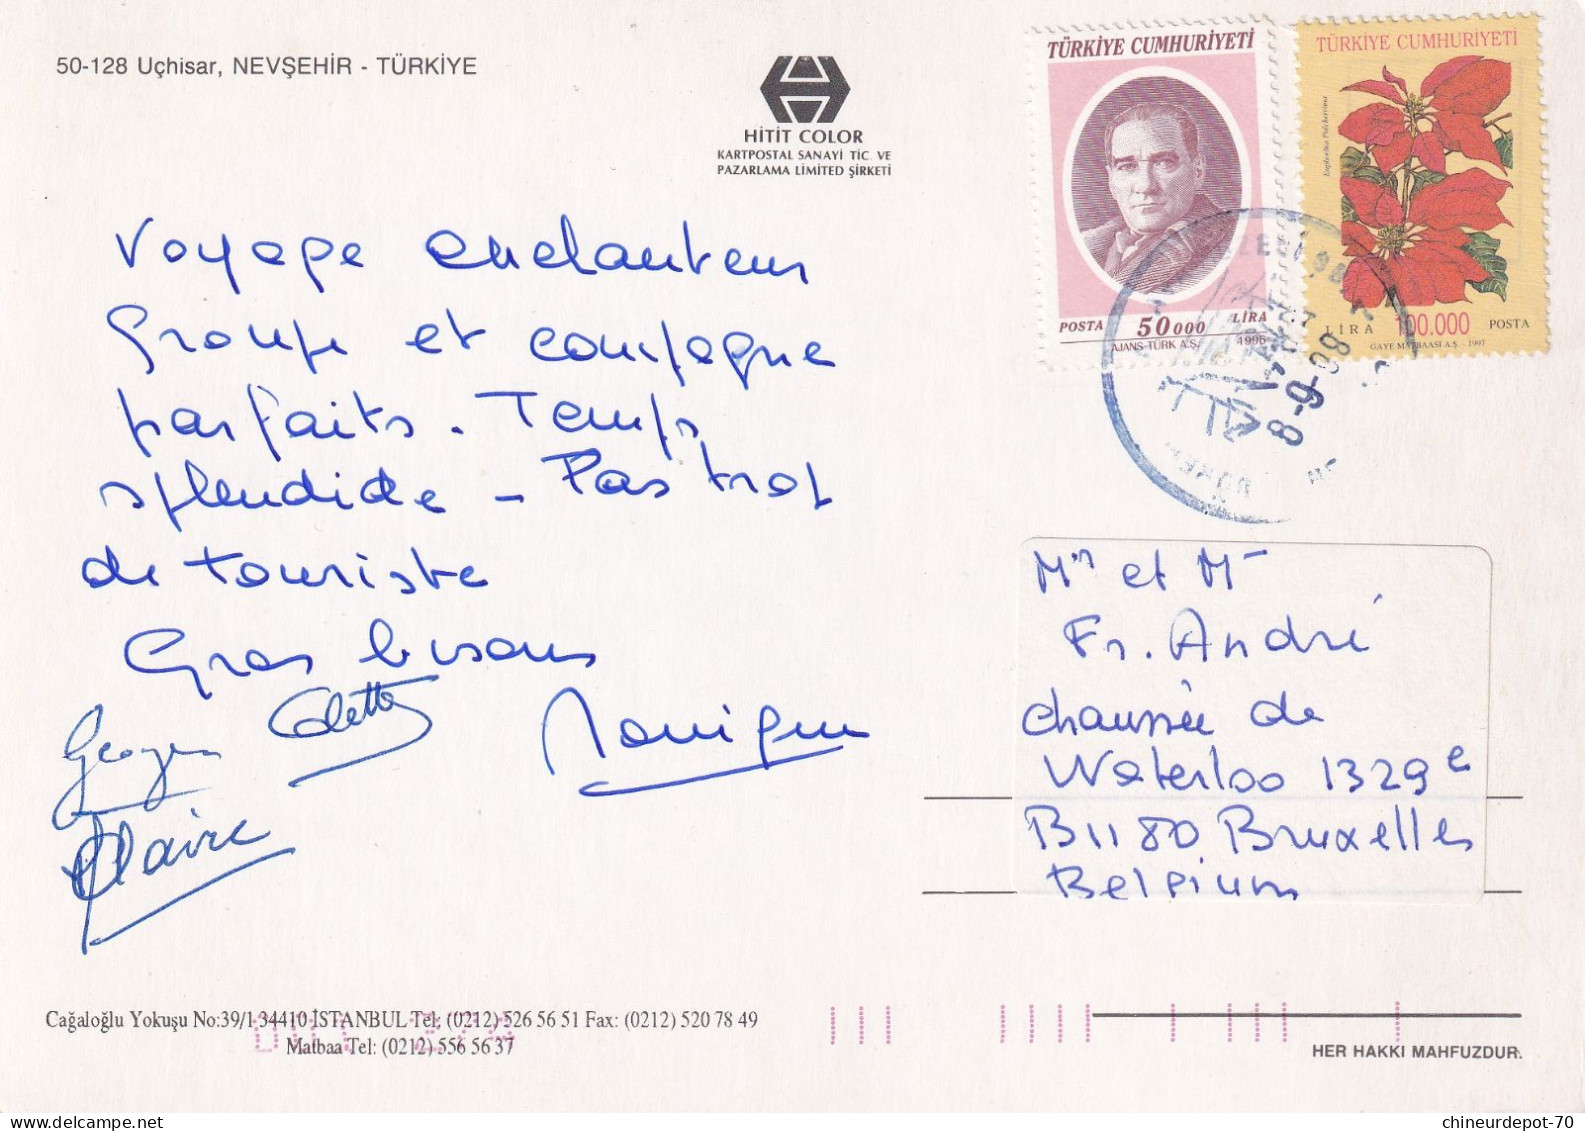 50-128 Uçhisar, NEVŞEHİR - TÜRKİYE
HİTİT COLOR
KARTPOSTAL SANAYİ TİC. VE
PAZARLAMA LIMITED ŞİRKETİ
TÜRKİYE CUMHURİYETİ
POSTA 50000 LİRA
AJANS-TÜRK A.Ş. 1996
TÜRKİYE CUMHURİYETİ
Euphorbia Pulcherrima
LİRA 100.000 POSTA
GAYE MATBAASI A.Ş. - 1997
8-9-98
Voyage enchanteur
Groupe et compagne
parfaits. Temps
splendide - Pas trop
de touriste
Gros bisous
Georges Colette Monique
Claire
Mr et Me
Fr. André
Chaussée de
Waterloo 1329e
B1180 Bruxelles
Belgium
Cağaloğlu Yokuşu No:39/1 34410 İSTANBUL Tel: (0212) 526 56 51 Fax: (0212) 520 78 49
Matbaa Tel: (0212) 556 56 37
HER HAKKI MAHFUZDUR.
chineurdepot-70